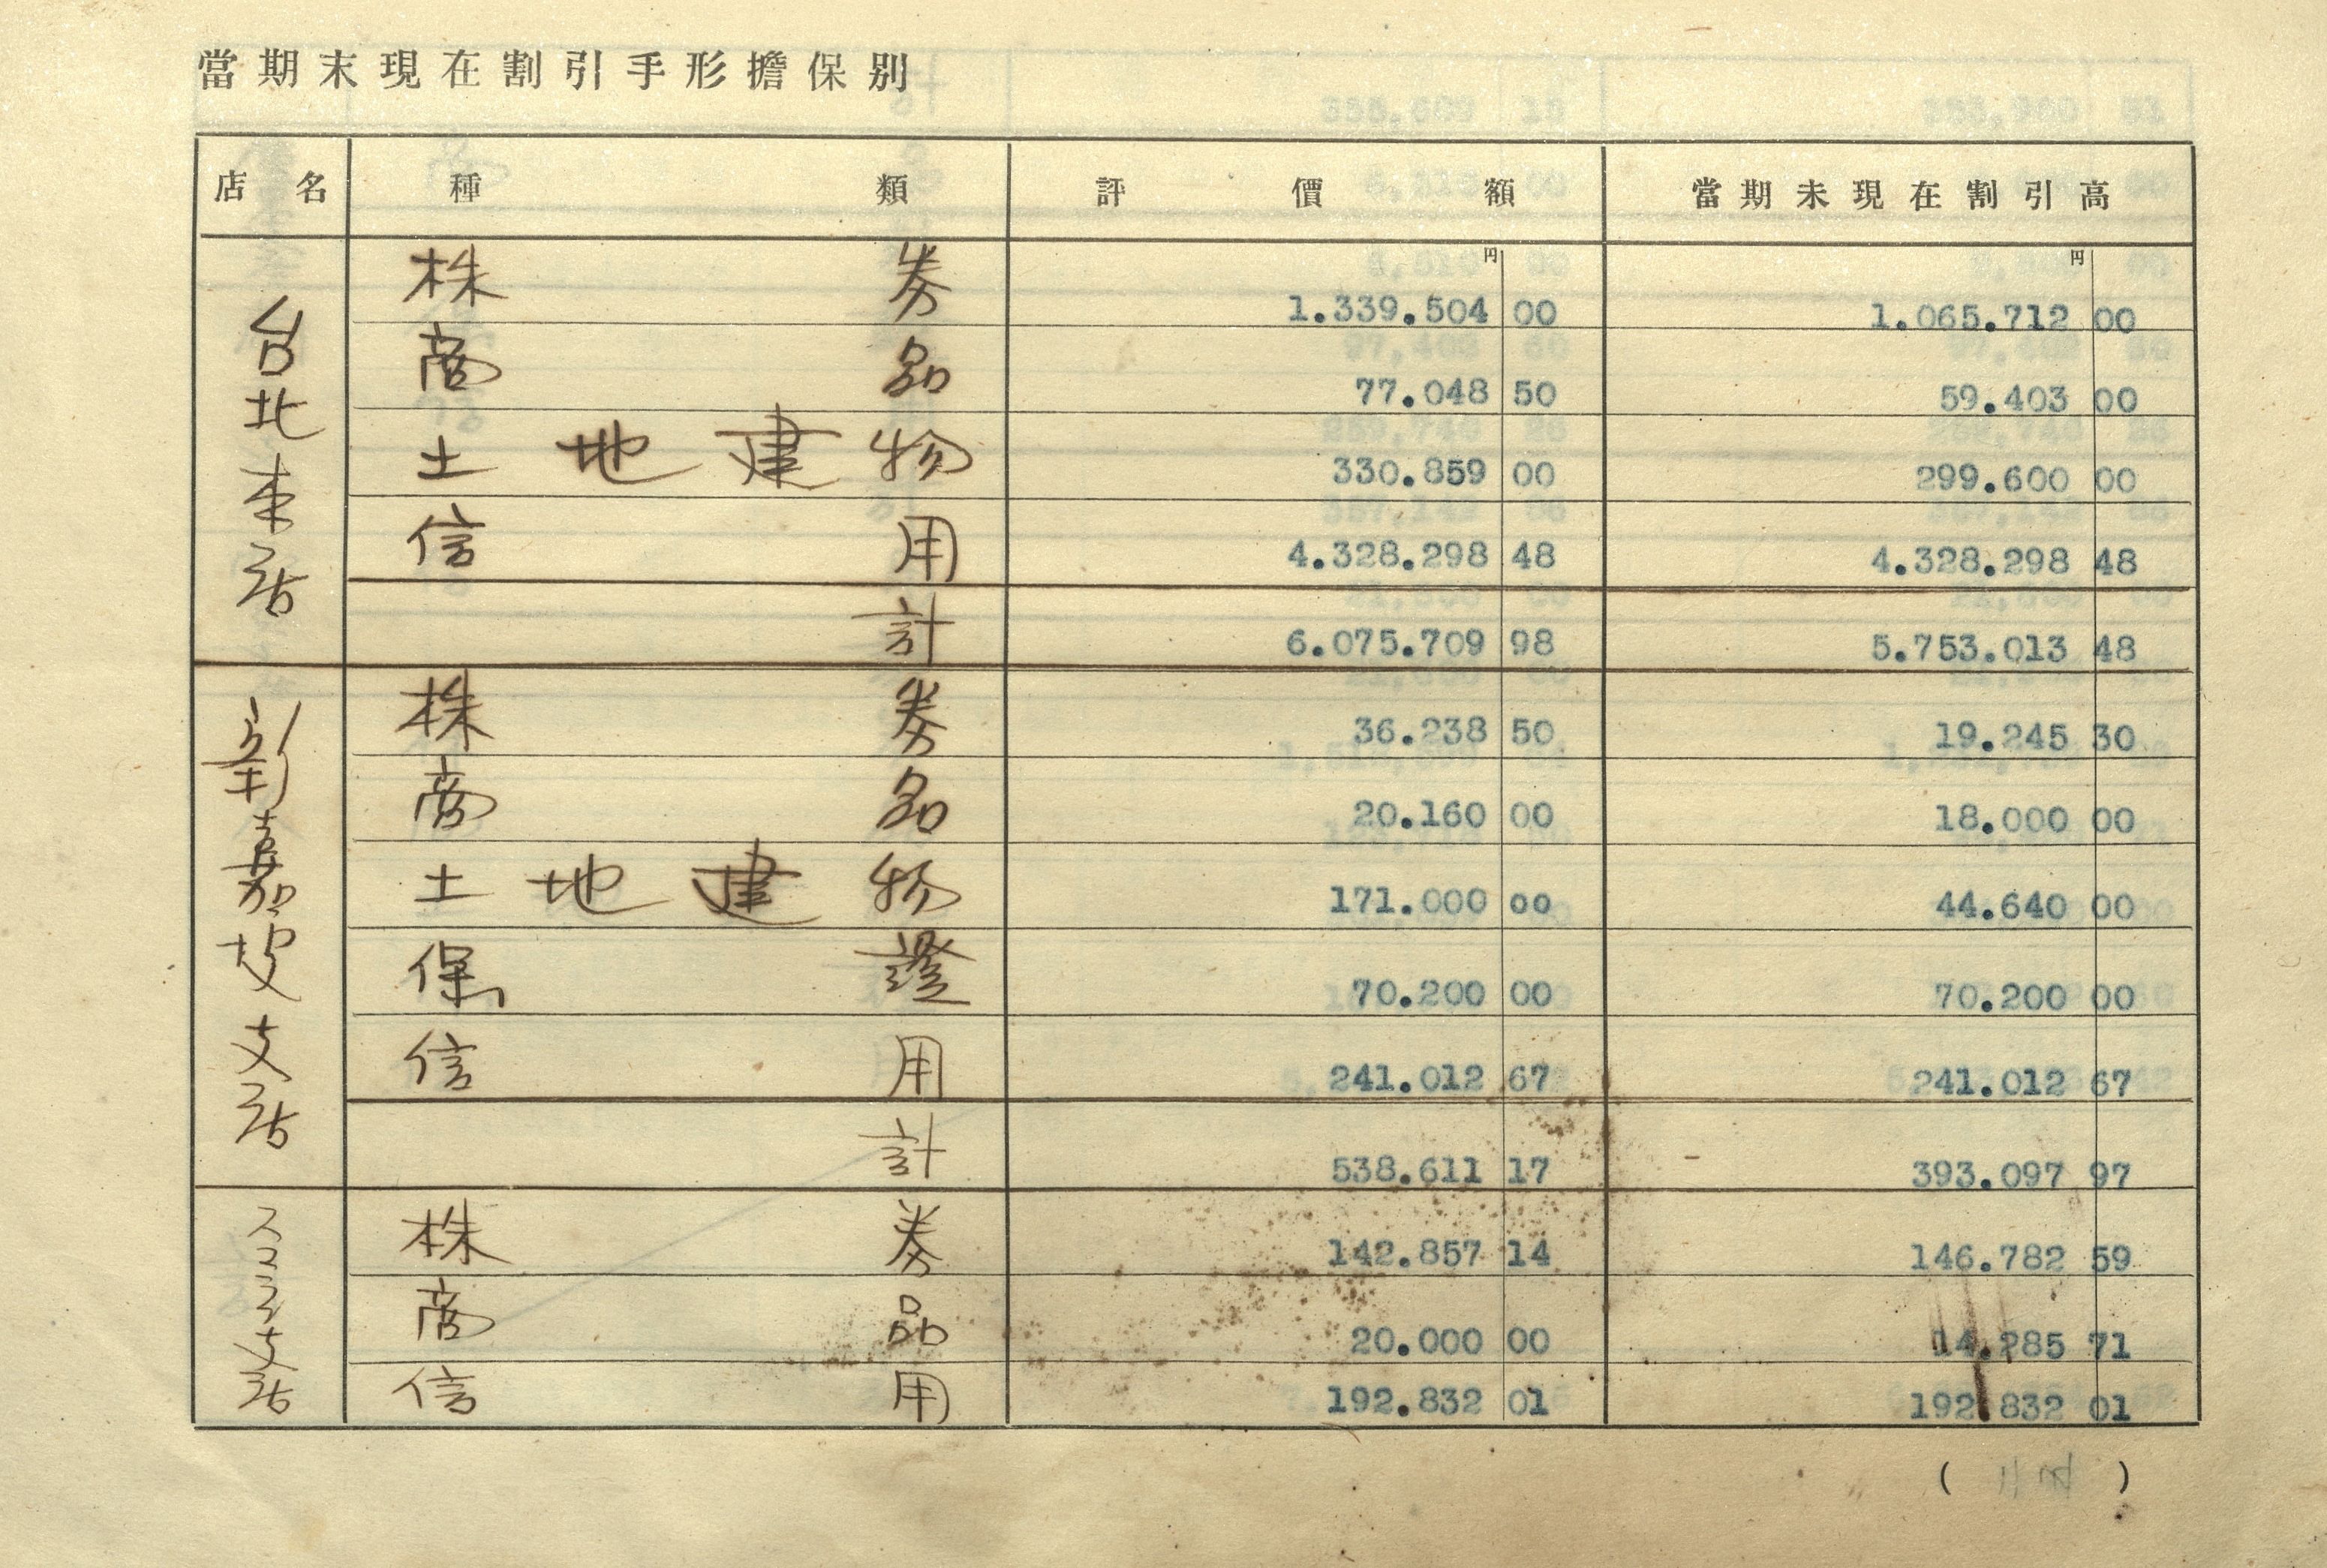 當期末現在割引手形擔保別
店名 種類 評價額 當期末現在割引高
円 円
台北本店 株券 1.339.504 00 1.065.712 00
商品 77.048 50 59.403 00
土地建物 330.859 00 299.600 00
信用 4.328.298 48 4.328.298 48
計 6.075.709 98 5.753.013 48
新嘉坡支店 株券 36.238 50 19.245 30
商品 20.160 00 18.000 00
土地建物 171.000 00 44.640 00
保證 70.200 00 70.200 00
信用 241.012 67 241.012 67
計 538.611 17 393.097 97
スマラン支店 株券 142.857 14 146.782 59
商品 20.000 00 14.285 71
信用 192.832 01 192.832 01